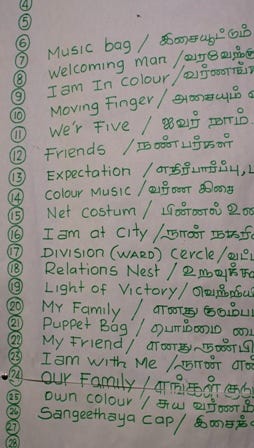 4
5
6 Music bag / இசையூட்டும்
7 Welcoming man / வரவேற்கு
8 I am In Colour / வர்ணங்க
9 Moving Finger / அசையும்
10 We'r Five / ஐவர் நாம்
11 Friends / நண்பர்கள்
12
13 Expectation / எதிர்பார்ப்பு,
14 Colour Music / வர்ண இசை
15 Net Costum / பின்னல் உ
16 I am at City / நான் நகரி
17 DIVISION (WARD) Cercle / வட்
18 Relations Nest / உறவுக்க
19 Light of Victory / வெற்றியி
20 My Family / எனது குடும்ப
21 Puppet Bag / பொம்மை பை
22 My Friend / எனது நண்பி
23 I am with Me / நான் என்
24 OUR Family / எங்கள் குடு
25 own colour / சுய வர்ணம்
26 Sangeethaya Cap / இசைக்
27
28